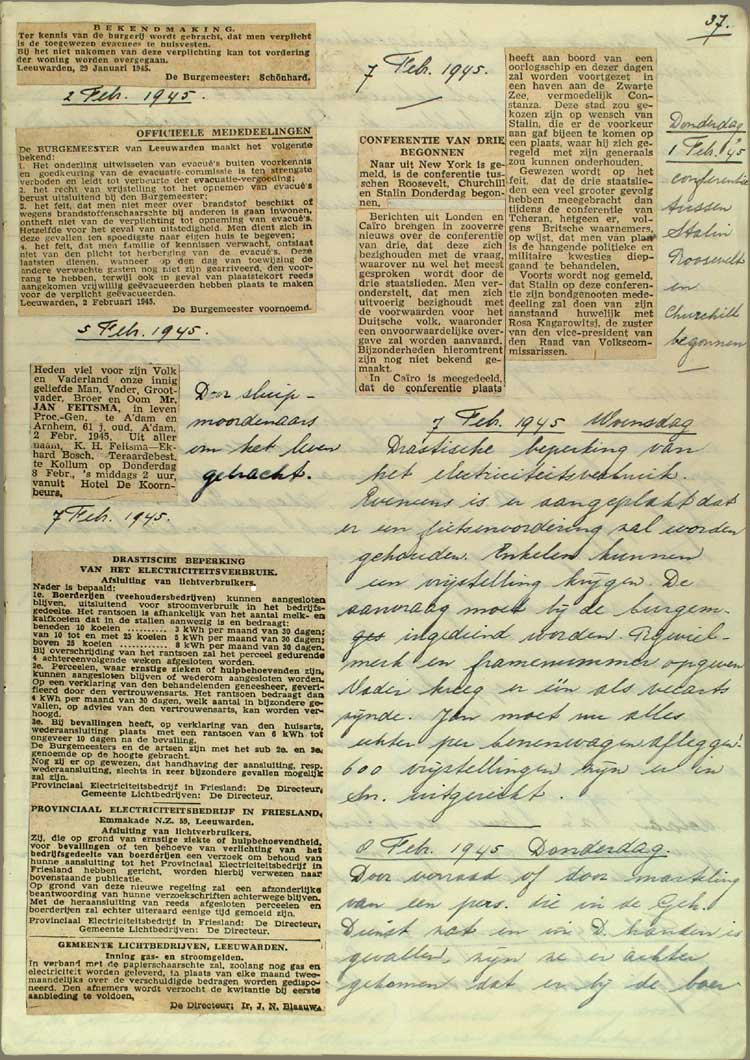 37.
BEKENDMAKING.
Ter kennis van de burgerij wordt gebracht, dat men verplicht
is de toegewezen evacuees te huisvesten.
Bij het niet nakomen van deze verplichting kan tot vordering
der woning worden overgegaan.
Leeuwarden, 29 Januari 1945.
De Burgemeester: Schönhard.
2 Febr. 1945.
OFFICIEELE MEDEDEELINGEN
De BURGEMEESTER van Leeuwarden maakt het volgende
bekend:
1. Het onderling uitwisselen van evacué's buiten voorkennis
en goedkeuring van de evacuatie-commissie is ten strengste
verboden en leidt tot verbeurte der evacuatie-vergoeding;
2. het recht van vrijstelling tot het opnemen van evacué's
berust uitsluitend bij den Burgemeester;
3. het feit, dat men niet meer over brandstof beschikt of
wegens brandstoffenschaarschte bij anderen is gaan inwonen,
ontheft niet van de verplichting tot opneming van evacué's.
Hetzelfde voor het geval van uitstedigheid. Men dient zich in
deze gevallen ten spoedigste naar eigen huis te begeven;
4. het feit, dat men familie of kennissen verwacht, ontslaat
niet van den plicht tot herberging van de evacué's. Deze
laatsten dienen wanneer op den dag van toewijzing de
andere verwachte gasten nog niet zijn gearriveerd, den voor-
rang te hebben, terwijl ook in geval van plaatstekort reeds
aangekomen vrijwillig geëvacueerden hebben plaats te maken
voor de verplicht geëvacueerden.
Leeuwarden, 2 Februari 1945.
De Burgemeester voornoemd.
5 Febr. 1945.
Heden viel voor zijn Volk
en Vaderland onze innig
geliefde Man, Vader, Groot-
vader, Broer en Oom Mr.
JAN FEITSMA, in leven
Proc.-Gen. te A'dam en
Arnhem, 61 j. oud, A'dam,
2 Febr. 1945. Uit aller
naam, K. H. Feitsma—Ek-
hard Bosch. Teraardebest.
te Kollum op Donderdag
8 Febr., 's middags 2 uur,
vanuit Hotel De Koorn-
beurs.
Door sluip-
moordenaars
om het leven
gebracht.
7 Febr. 1945.
DRASTISCHE BEPERKING
VAN HET ELECTRICITEITSVERBRUIK.
Afsluiting van lichtverbruikers.
Nader is bepaald:
1e. Boerderijen (veehoudersbedrijven) kunnen aangesloten
blijven, uitsluitend voor stroomverbruik in het bedrijfs-
gedeelte. Het rantsoen is afhankelijk van het aantal melk- en
kalfkoeien dat in de stallen aanwezig is en bedraagt:
beneden 10 koeien ........... 3 kWh per maand van 30 dagen;
van 10 tot en met 25 koeien 5 kWh per maand van 30 dagen;
boven 25 koeien ............. 8 kWh per maand van 30 dagen.
Bij overschrijding van het rantsoen zal het perceel gedurende
4 achtereenvolgende weken afgesloten worden.
2e. Perceelen, waar ernstige zieken of hulpbehoevenden zijn,
kunnen aangesloten blijven of wederom aangesloten worden.
Op een verklaring van den behandelenden geneesheer, geveri-
fieerd door den vertrouwensarts. Het rantsoen bedraagt dan
4 kWh per maand van 30 dagen, welk aantal in bijzondere ge-
vallen, op advies van den vertrouwensarts, kan worden ver-
hoogd.
3e. Bij bevallingen heeft, op verklaring van den huisarts,
wederaansluiting plaats met een rantsoen van 6 kWh tot
ongeveer 10 dagen na de bevalling.
De Burgemeesters en de artsen zijn met het sub 2e. en 3e.
genoemde op de hoogte gebracht.
Nog zij er op gewezen, dat handhaving der aansluiting, resp.
wederaansluiting, slechts in zeer bijzondere gevallen mogelijk
zal zijn.
Provinciaal Electriciteitsbedrijf in Friesland: De Directeur,
Gemeente Lichtbedrijven: De Directeur.
PROVINCIAAL ELECTRICITEITSBEDRIJF IN FRIESLAND,
Emmakade N.Z. 59, Leeuwarden.
Afsluiting van lichtverbruikers.
Zij, die op grond van ernstige ziekte of hulpbehoevendheid,
voor bevallingen of ten behoeve van verlichting van het
bedrijfsgedeelte van boerderijen een verzoek om behoud van
hunne aansluiting tot het Provinciaal Electriciteitsbedrijf in
Friesland hebben gericht, worden hierbij verwezen naar
bovenstaande publicatie.
Op grond van deze nieuwe regeling zal een afzonderlijke
beantwoording van hunne verzoekschriften achterwege blijven.
Met de heraansluiting van reeds afgesloten perceelen en
boerderijen zal echter uiteraard eenige tijd gemoeid zijn.
Provinciaal Electriciteitsbedrijf in Friesland: De Directeur,
Gemeente Lichtbedrijven: De Directeur.
GEMEENTE LICHTBEDRIJVEN, LEEUWARDEN.
Inning gas- en stroomgelden.
In verband met de papierschaarschte zal, zoolang nog gas en
electriciteit worden geleverd, in plaats van elke maand twee-
maandelijks over de verschuldigde bedragen worden gedispo-
neerd. Den afnemers wordt verzocht de kwitantie bij eerste
aanbieding te voldoen.
De Directeur: Ir. J. N. Blaauw.
7 Febr. 1945.
CONFERENTIE VAN DRIE
BEGONNEN
Naar uit New York is ge-
meld, is de conferentie tus-
schen Roosevelt, Churchill
en Stalin Donderdag begon-
nen.
Berichten uit Londen en
Caïro brengen in zooverre
nieuws over de conferentie
van drie, dat deze zich
bezighouden met de vraag,
waarover nu wel het meest
gesproken wordt door de
drie staatslieden. Men ver-
onderstelt, dat men zich
uitvoerig bezighoudt met
de voorwaarden voor het
Duitsche volk, waaronder
een onvoorwaardelijke over-
gave zal worden aanvaard.
Bijzonderheden hieromtrent
zijn nog niet bekend ge-
maakt.
In Caïro is meegedeeld,
dat de conferentie plaats
heeft aan boord van een
oorlogsschip en dezer dagen
zal worden voortgezet in
een haven aan de Zwarte
Zee, vermoedelijk Con-
stanza. Deze stad zou ge-
kozen zijn op wensch van
Stalin, die er de voorkeur
aan gaf bijeen te komen op
een plaats, waar hij zich ge-
regeld met zijn generaals
zou kunnen onderhouden.
Gewezen wordt op het
feit, dat de drie staatslie-
den een veel grooter gevolg
hebben meegebracht dan
tijdens de conferentie van
Teheran, hetgeen er, vol-
gens Britsche waarnemers,
op wijst, dat men van plan
is de hangende politieke en
militaire kwesties diep-
gaand te behandelen.
Voorts wordt nog gemeld,
dat Stalin op deze conferen-
tie zijn bondgenooten mede-
deeling zal doen van zijn
aanstaand huwelijk met
Rosa Kagarowitsj, de zuster
van den vice-president van
den Raad van Volkscom-
missarissen.
Donderdag
1 Febr. '45
conferentie
tussen
Stalin
Roosevelt
en
Churchill
begonnen
7 Febr. 1945 Woensdag
Drastische beperking van
het electriciteitsverbruik.
Eveneens is er aangeplakt dat
er een fietsenvordering zal worden
gehouden. Enkelen kunnen
een vrijstelling krijgen. De
aanvraag moet bij de burgem-
ingediend worden. Rijwiel-
merk en framenummer opgeven
Vader kreeg er één als veearts
zijnde. Jan moet nu alles
echter per benenwagen afleggen!
600 vrijstellingen zijn er in
Lw. uitgereikt.
8 Febr. 1945 Donderdag.
Door verraad of door marteling
van een pers. die in de Geh.
Dienst zat en in D. handen is
gevallen, zijn ze er achter
gekomen dat er bij de boer